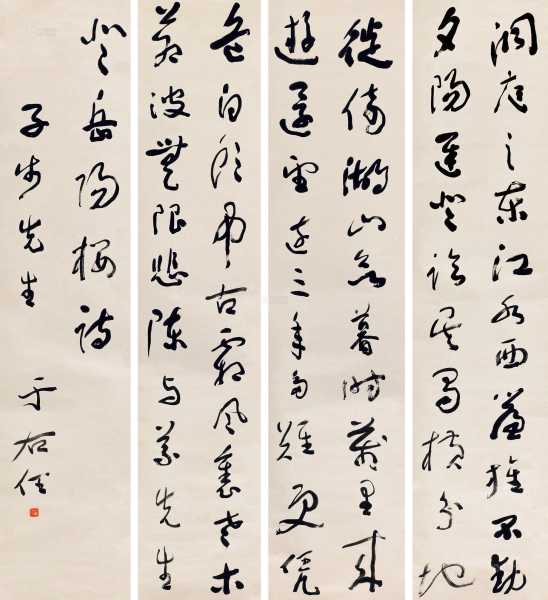 洞庭之東江水西簾旌不動
夕陽遲登臨吳蜀橫分地
徙倚湖山欲暮時萬里來
遊還望遠三年多難更憑
危白頭弔古霜風裏老木
蒼波無限悲陳與義先生
登岳陽樓詩
子步先生
于右任